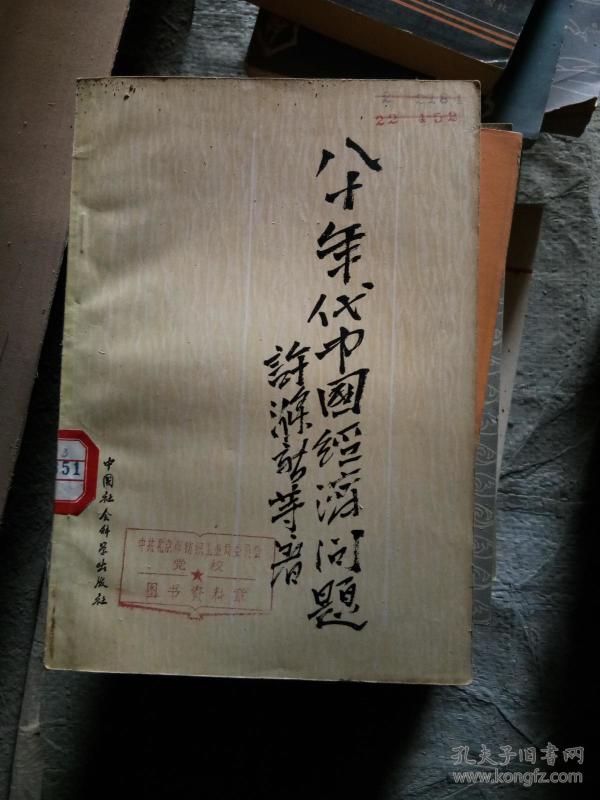 22 152
八十年代中國經济问題
許滌新等著
中国社会科学出版社
3
351
中共北京市纺织工业局委员会
党校
图书资料章
孔夫子旧书网
www.kongfz.com